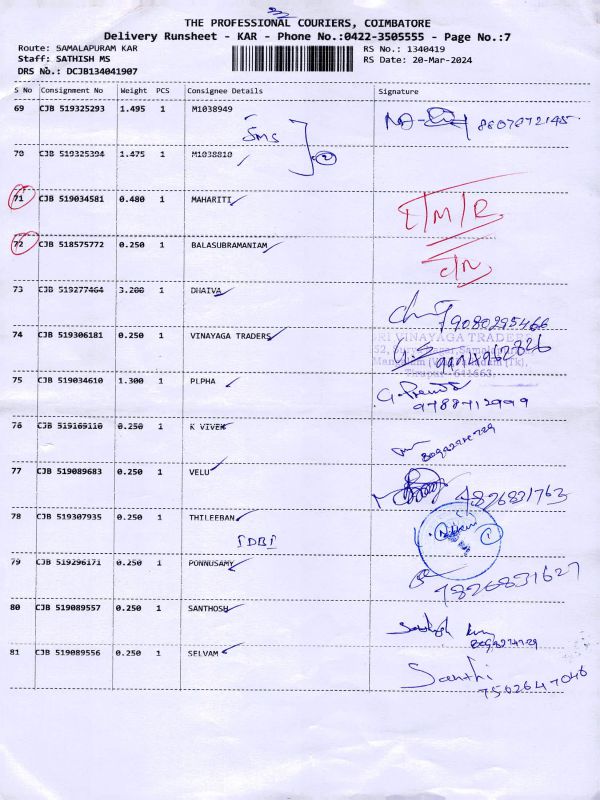 THE PROFESSIONAL COURIERS, COIMBATORE
Delivery Runsheet - KAR - Phone No.:0422-3505555 - Page No.:7
Route: SAMALAPURAM KAR
RS No.: 1340419
Staff: SATHISH MS
RS Date: 20-Mar-2024
DRS No.: DCJB134041907
S No Consignment No Weight PCS Consignee Details Signature
69 CJB 519325293 1.495 1 M1038949
SMS
70 CJB 519325394 1.475 1 M1038810
71 CJB 519034581 0.480 1 MAHARITI
72 CJB 518575772 0.250 1 BALASUBRAMANIAM
73 CJB 519277464 3.200 1 DHAIVA
9080295466
74 CJB 519306181 0.250 1 VINAYAGA TRADERS
SRI VINAYAGA TRADERS
9994962826
75 CJB 519034610 1.300 1 PLPHA
9788712999
76 CJB 519169110 0.250 1 K VIVEK
77 CJB 519089683 0.250 1 VELU
4826831763
78 CJB 519307935 0.250 1 THILEEBAN
IDBI
79 CJB 519296171 0.250 1 PONNUSAMY
80 CJB 519089557 0.250 1 SANTHOSH
81 CJB 519089556 0.250 1 SELVAM
Santhi
7502647046